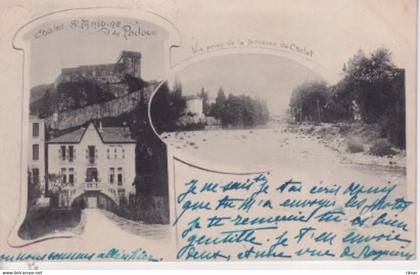 Chalet St Antoine
de Padoue
Vue prise de la Terrasse du Chalet
Je ne sais si je t'ai écris depuis
que tu m'a envoyé les photos
Je te remercie tu es bien
gentille. Je t'en envoie
Deux, et une vue de
nous sommes attentifs